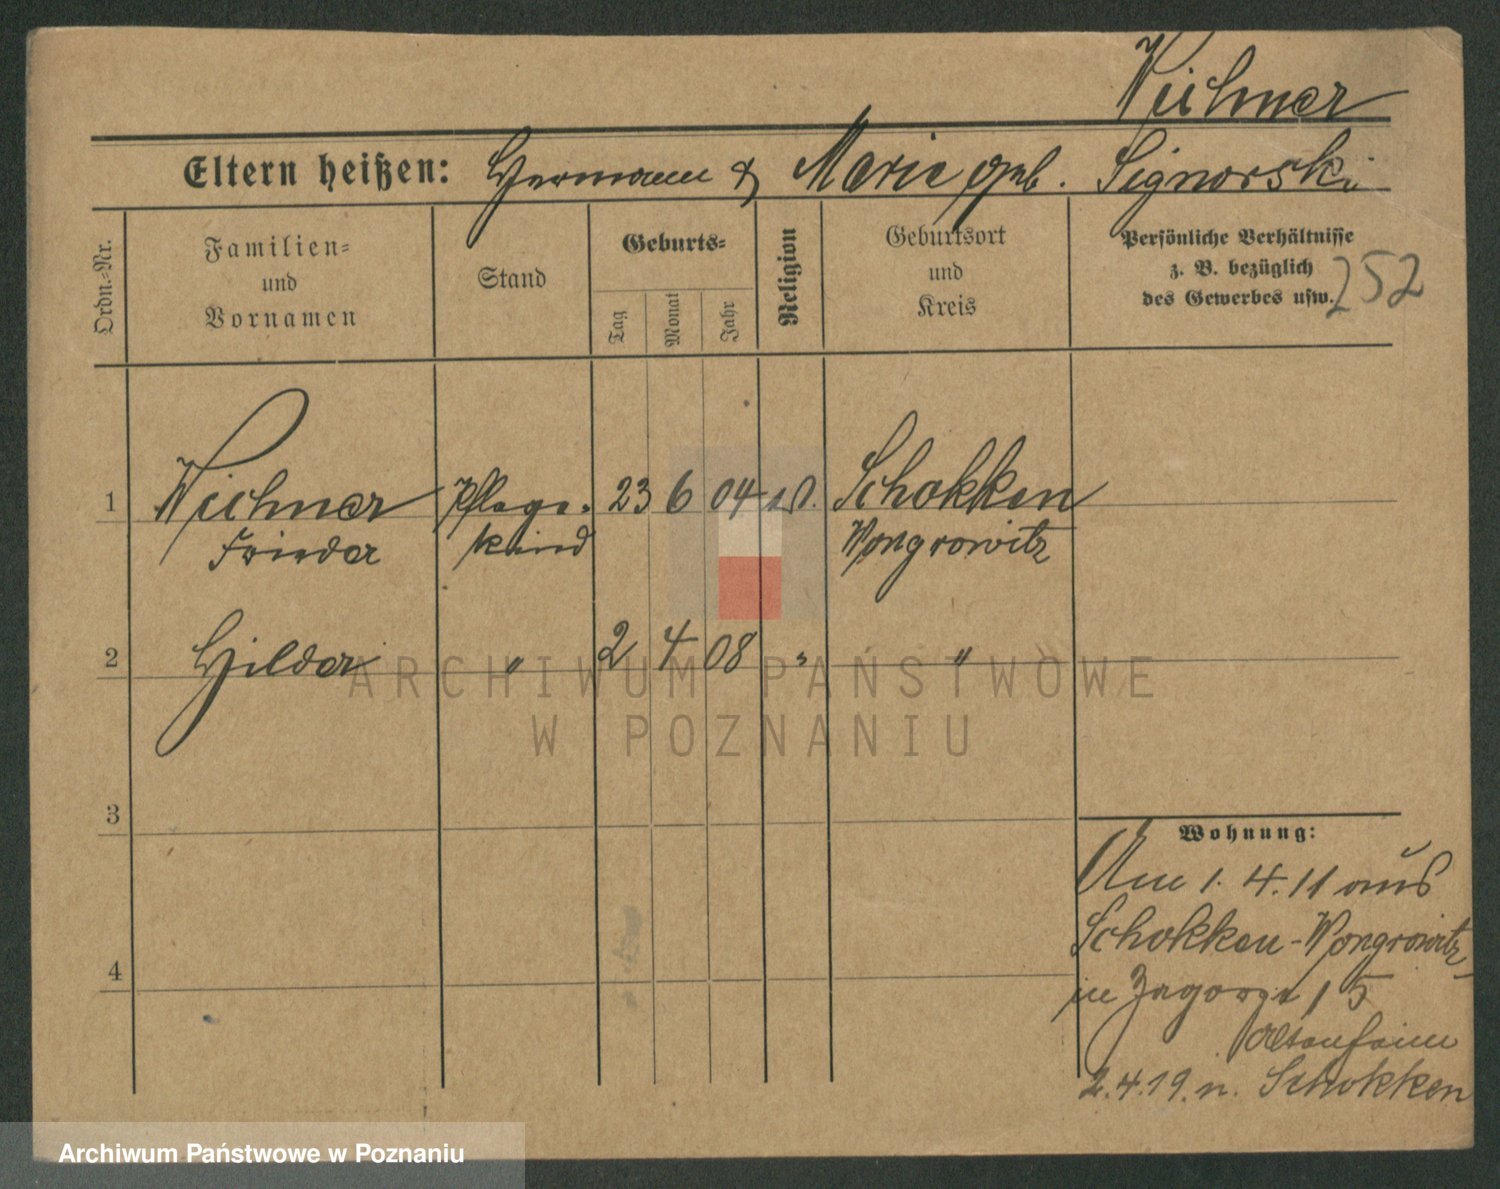 Wichner
Eltern heißen: Hermann & Marie geb. Signorski
Ordn.-Nr.
Familien- und Vornamen
Stand
Geburts-
Tag
Monat
Jahr
Religion
Geburtsort und Kreis
Persönliche Verhältnisse
z. B. bezüglich
des Gewerbes usw.
252
1 Wichner Pflege- 23 6 04 Schokken
Frieda kind Wongrowitz
2 Hilda " 2 4 08 " "
3
Wohnung:
Am 1. 4. 11 aus
Schokken-Wongrowitz
in Zagorze 15
4
2.4.19. n. Schokken
ARCHIWUM PAŃSTWOWE
W POZNANIU
Archiwum Państwowe w Poznaniu